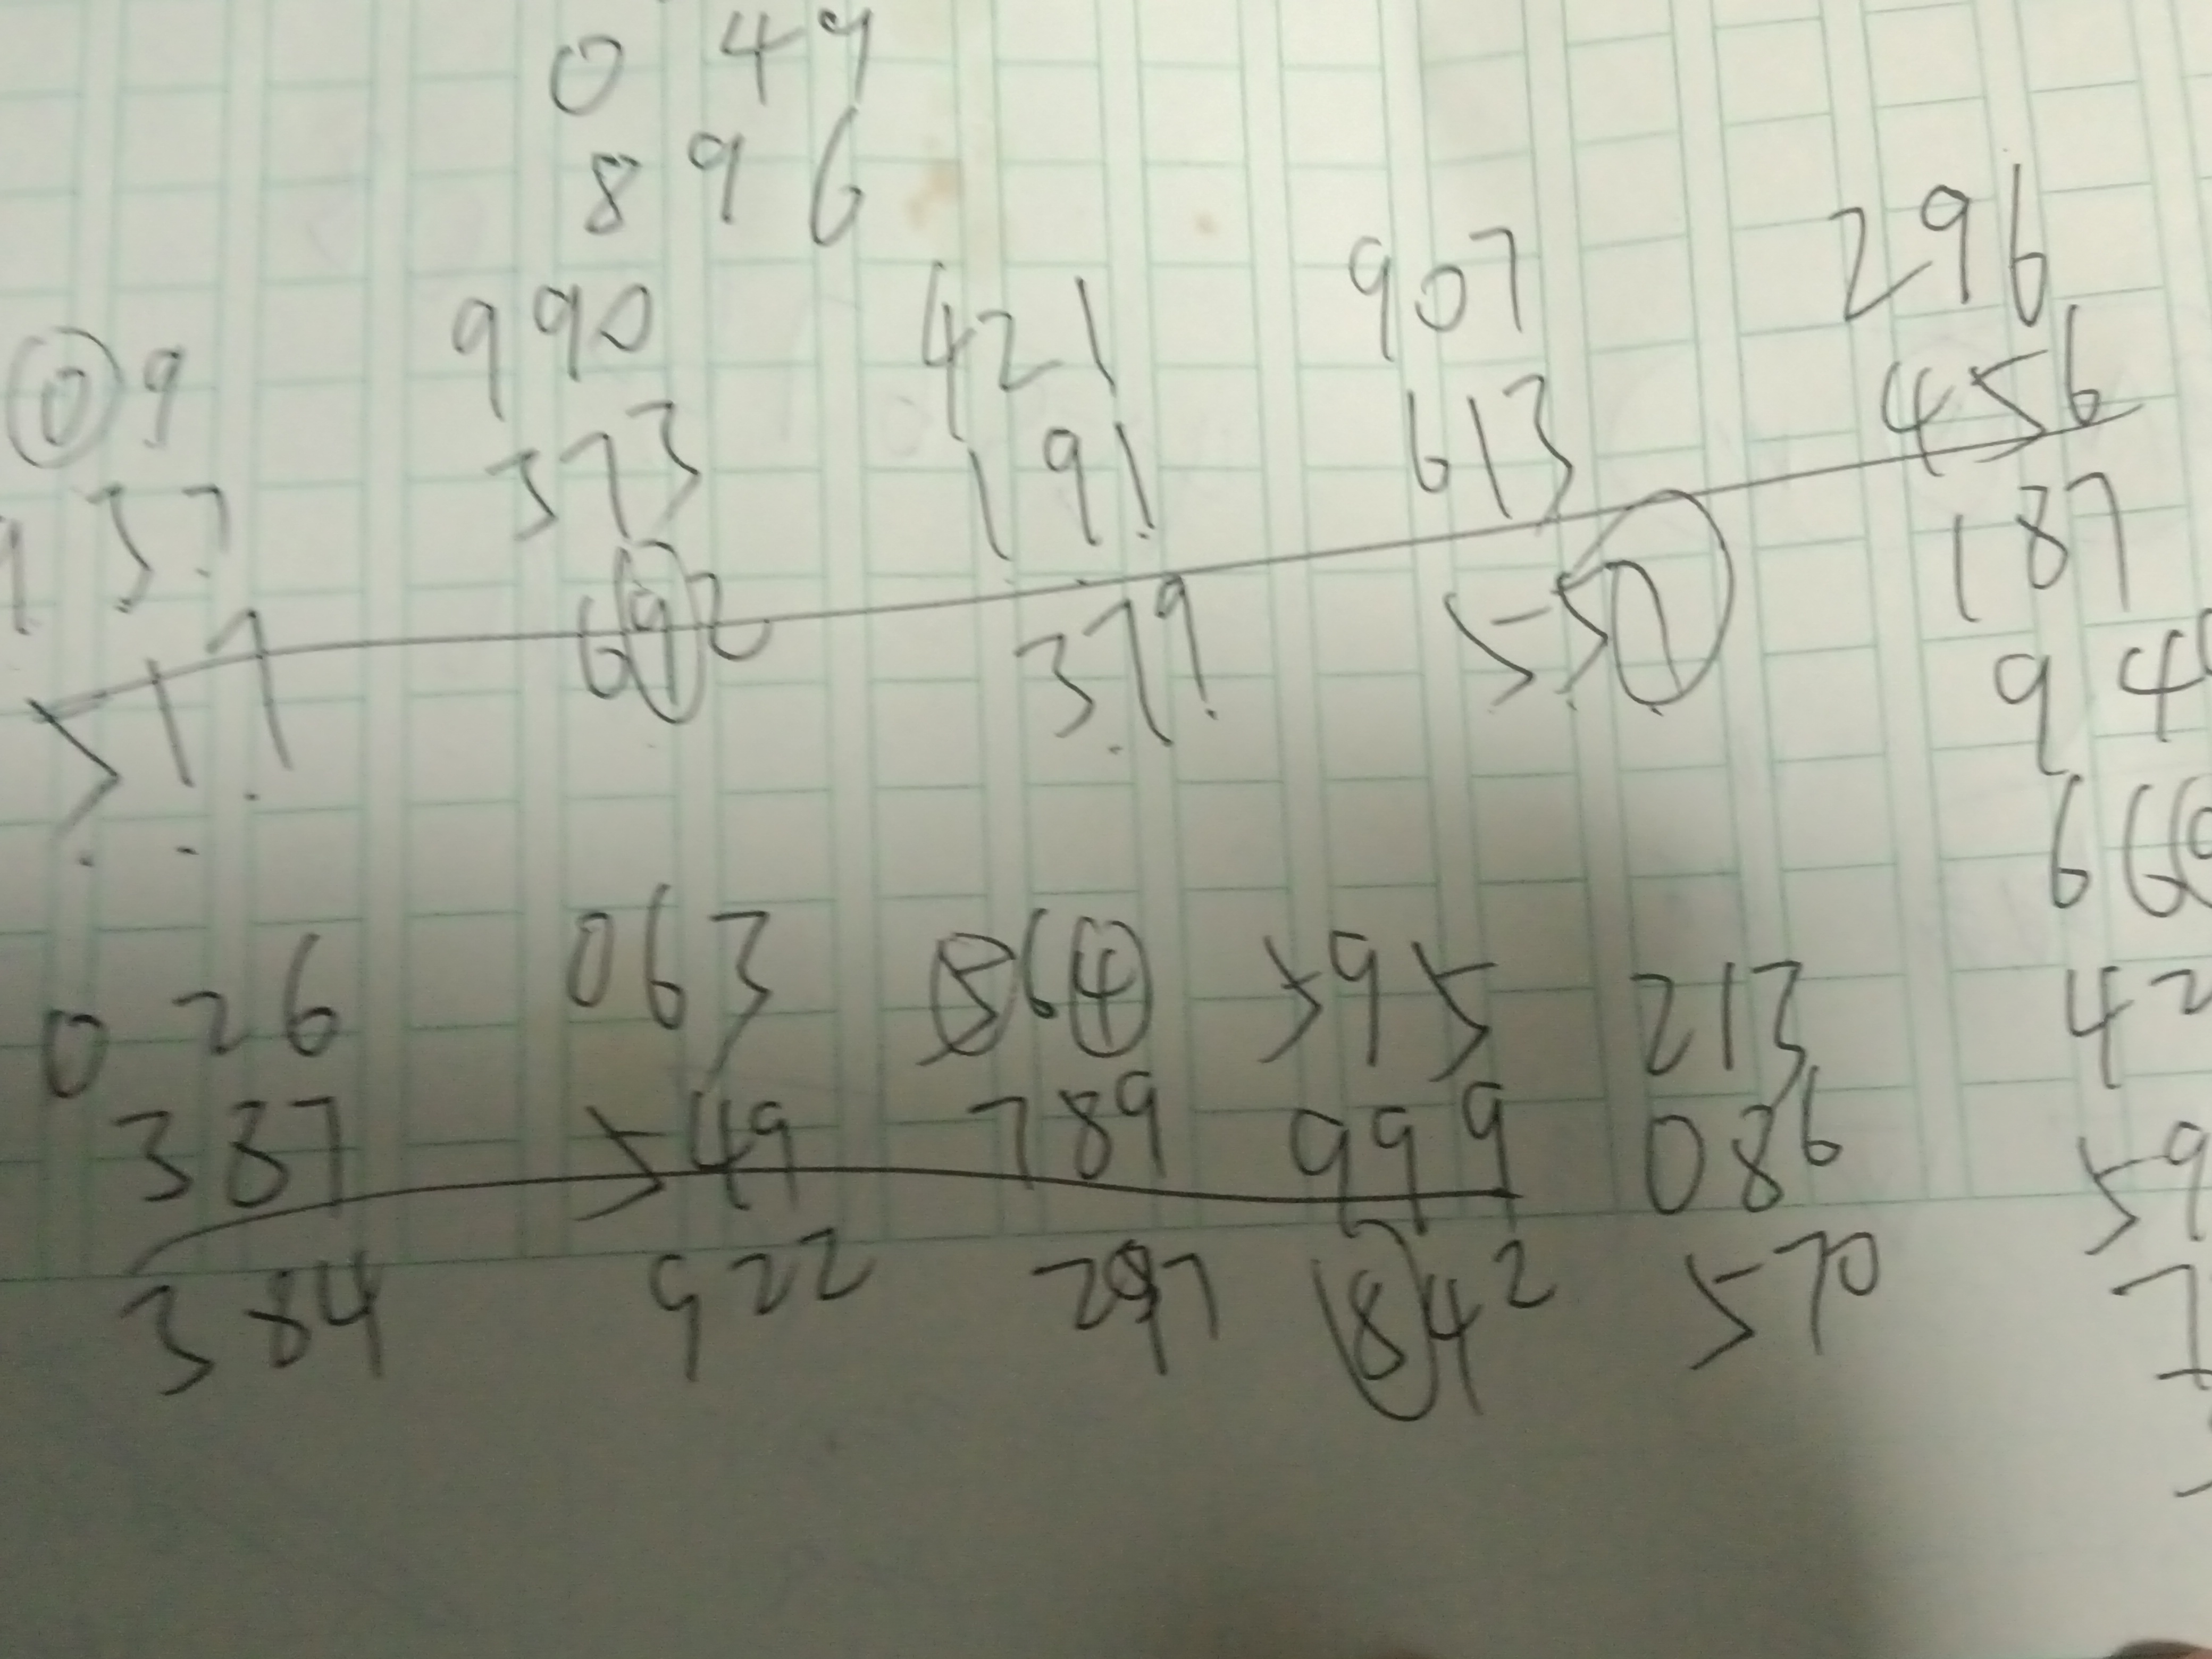 0 4 9
8 9 6
09 990 421 907 296
373 191 613 456
511 692 379 187
9 4
026 063 564 595 213 42
387 549 789 999 086 59
384 922 842 570 7